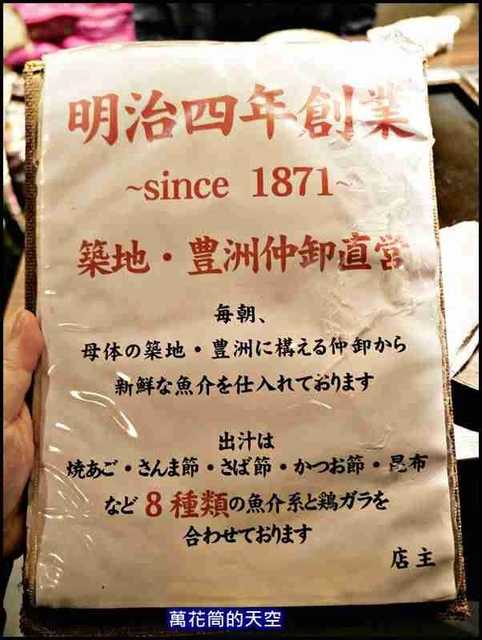 明治四年創業
~since 1871~
築地・豊洲仲卸直営
毎朝、
母体の築地・豊洲に構える仲卸から
新鮮な魚介を仕入れております
出汁は
焼あご・さんま節・さば節・かつお節・昆布
など8種類の魚介系と鶏ガラを
合わせております
店主
萬花筒的天空